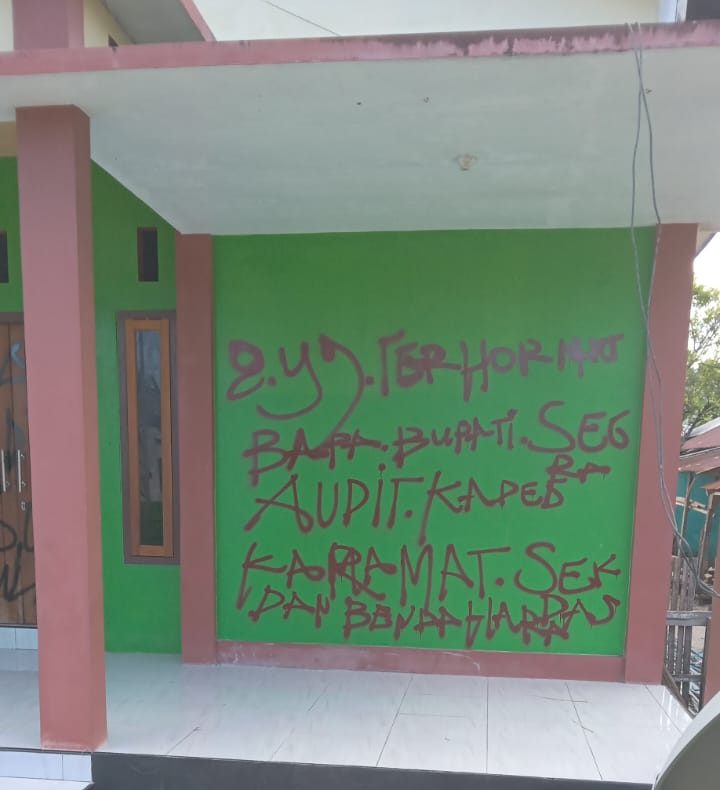 2.Yg.TERHORMAT
BAPA.BUPATI.SEG
RA
AUDIT.KADES
KARAMAT.SEK
DAS
DAN BENDAHARA